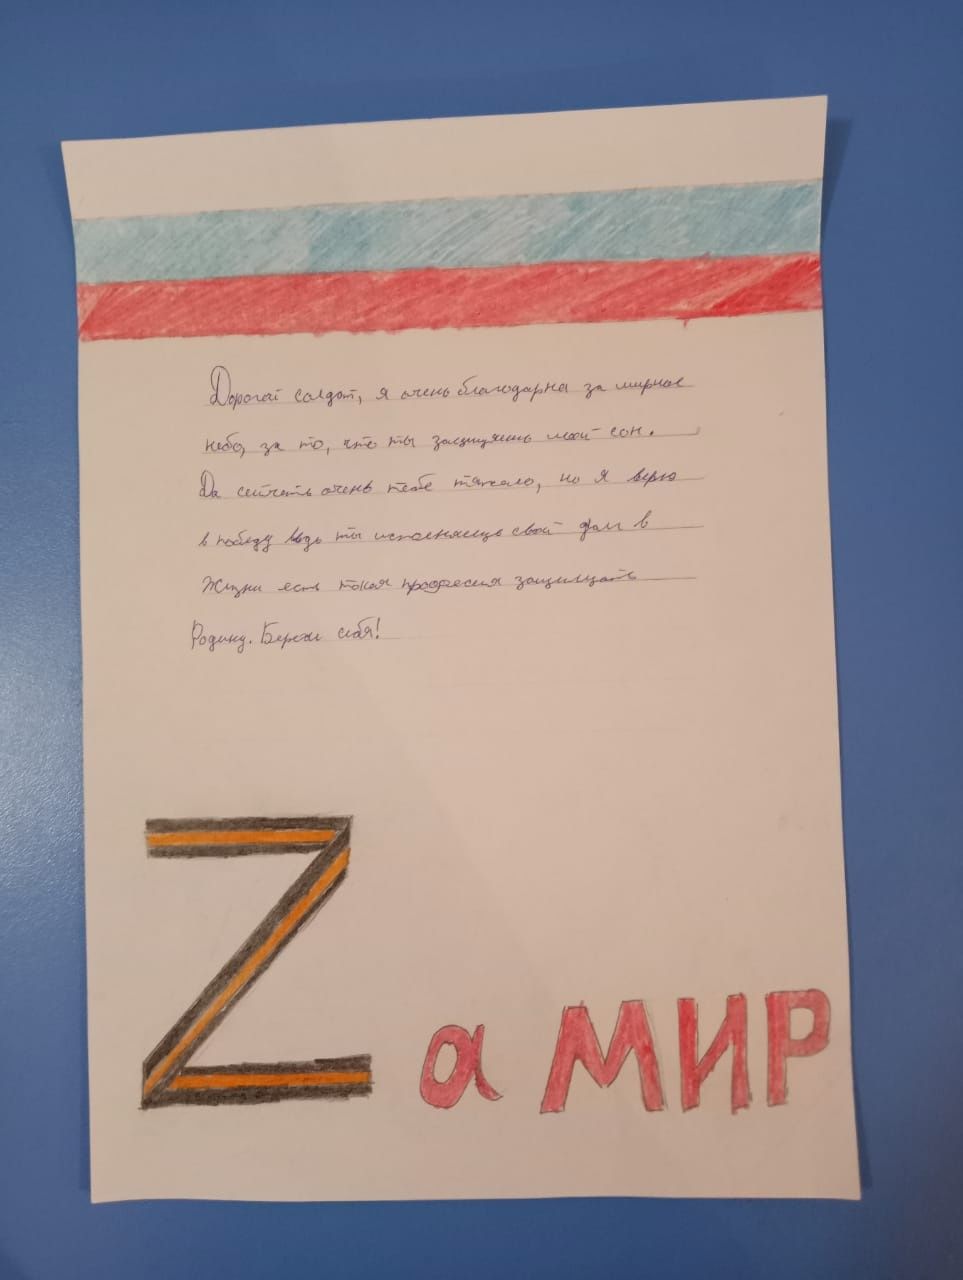 Дорогат солдат, я очень благодарна за мирное
небо, за то, что ты защищяешь мой сон.
Да сейчать очень тебе тяжело, но я верю
в победу ведь ты исполняещь свой долг в
Жизни есть такая професия защищать
Родину. Береги себя!
Zа МИР